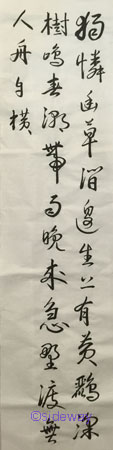 獨憐幽草澗邊生上有黃鸝深
樹鳴春潮帶雨晚來急野渡無
人舟自橫
©sideway